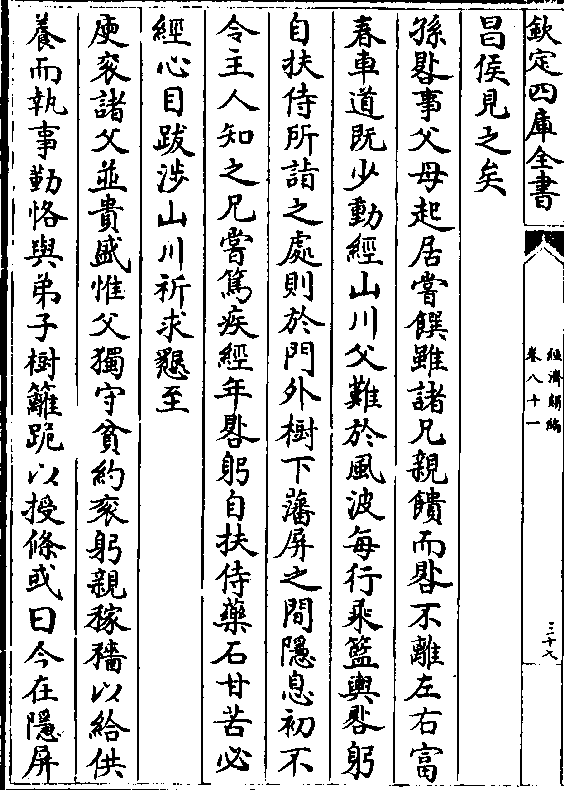 欽定四庫全書
經濟類編
卷八十一
三十八
昌侯見之矣
孫晷事父母起居嘗饌雖諸兄親饋而晷不離左右富
春車道既少動經山川父難於風波每行乘籃輿晷躬
自扶侍所詣之處則於門外樹下藩屏之間隱息初不
令主人知之兄嘗篤疾經年晷躬自扶侍藥石甘苦必
經心目跋涉山川祈求懇至
庾衮諸父並貴盛惟父獨守貧約衮躬親稼穡以給供
養而執事勤恪與弟子樹籬跪以授條或曰今在隱屏